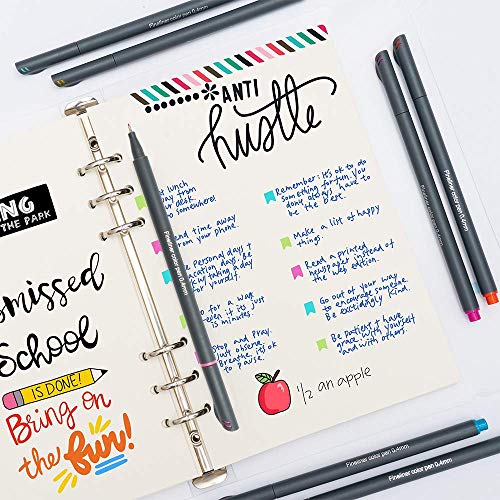 ANTI
hustle
NG
THE PARK
smissed
School
IS DONE!
Bring on
the fun!
t lunch
way from
ur desk
to somewhere!
nd time away
from your phone.
e personal days +
vacation days. Be
taking a day
for yourself.
o for a walk
even if its just
15 minutes.
Stop and pray.
Just observe.
Breathe, it's ok
to pause.
Remember: It's ok to
do something for fun. You
dont always have to
be the best.
Make a list of happy
things.
Read a printed
newspaper instead of
the web edition.
Go out of your way
to encourage someone.
Be excitingly kind.
Be patient + have
grace with yourself
and with others.
1/2 an apple
Fineliner color pen 0.4mm
Fineliner color pen 0.4mm
Fineliner color pen 0.4mm
Fineliner color pen 0.4mm
Fineliner color pen 0.4mm
Fineliner color pen 0.4mm
Fineliner color pen 0.4mm